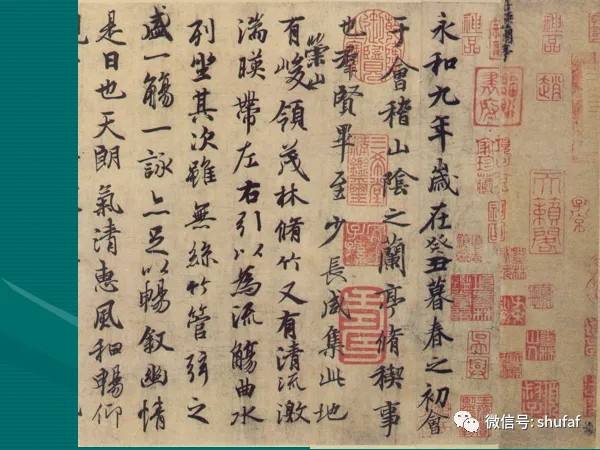 神品
天籟閣
神品
永和九年歲在癸丑暮春之初會
于會稽山陰之蘭亭脩稧事
也羣賢畢至少長咸集此地
有崇山峻領茂林脩竹又有清流激
湍暎帶左右引以為流觴曲水
列坐其次雖無絲竹管弦之
盛一觴一詠亦足以暢敘幽情
是日也天朗氣清惠風和暢仰
微信号: shufaf